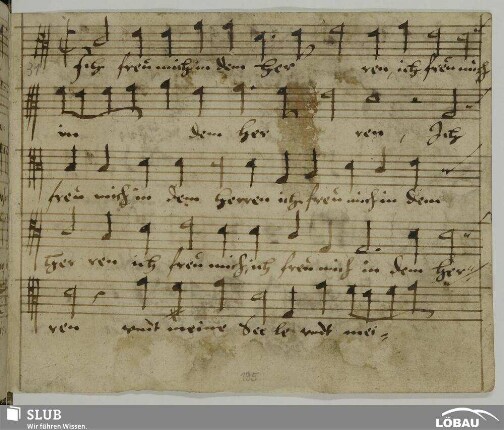 31
Ich freu mich in dem Her ren, ich freu mich
in dem Her ren, Ich
freu mich in dem Herren ich freu mich in dem
Her ren ich freu mich, ich freu mich in dem Her=
ren undt meine See le undt mei=
195
SLUB
Wir führen Wissen.
LÖBAU